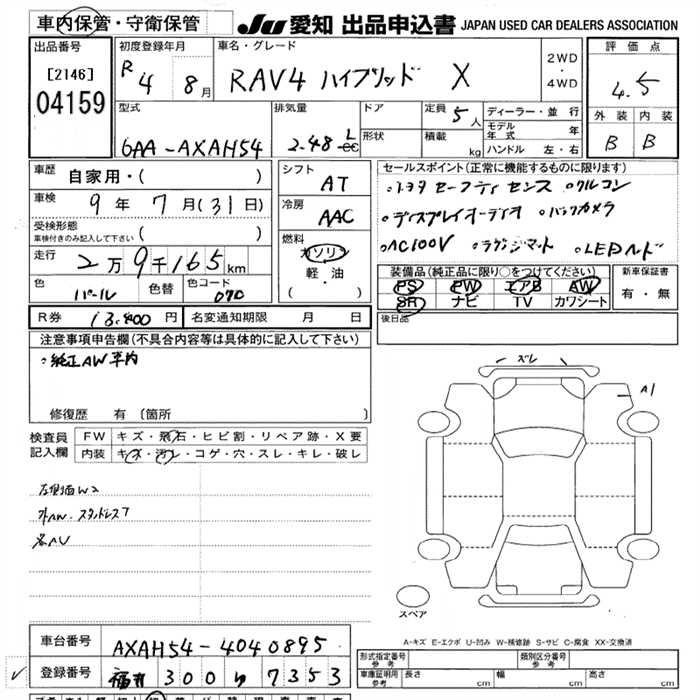 車内保管・守衛保管 JU 愛知 出品申込書 JAPAN USED CAR DEALERS ASSOCIATION
出品番号 初度登録年月 車名・グレード 評価点
[2146] R 4 8月 RAV4 ハイブリッド X 2WD・4WD 4.5
04159 型式 排気量 ドア 定員 5人 ディーラー・並行 外装 内装
6AA-AXAH54 2.48 L cc 形状 積載 kg モデル年式 年 B B
ハンドル 左・右
車歴 自家用・( ) シフト AT セールスポイント(正常に機能するものに限ります)
車検 9年 7月(31日) 冷房 AAC ・トヨタ セーフティ センス ・クルコン
受検形態 ( ) ・ディスプレイオーディオ ・バックカメラ
車検付きのみ記入して下さい 燃料 ガソリン ・AC100V ・LEDヘッド
走行 2万9千165km 軽・油 装備品(純正品に限り○をつけてください) 新車保証書
色 パール 色替 色コード 070 ( ) PS PW エアB AW 有・無
SR ナビ TV カワシート
R券 13,400円 名変通知期限 月 日 後日品
注意事項申告欄(不具合内容等は具体的に記入して下さい)
・純正AW車内
ズレ
A1
修復歴 有 〔箇所 〕
検査員記入欄 FW キズ・飛石・ヒビ割・リペア跡・X要
内装 キズ・汚レ・コゲ・穴・スレ・キレ・破レ
左側面W2
外AW・スタッドレスT
スペア
車台番号 AXAH54-4040895
A-キズ E-エクボ U-凹み W-補修跡 S-サビ C-腐食 XX-交換済
登録番号 福井 300 7353
形式指定番号 参考 類別区分番号 参考
車庫証明用 参考 長さ cm 幅 cm 高さ cm